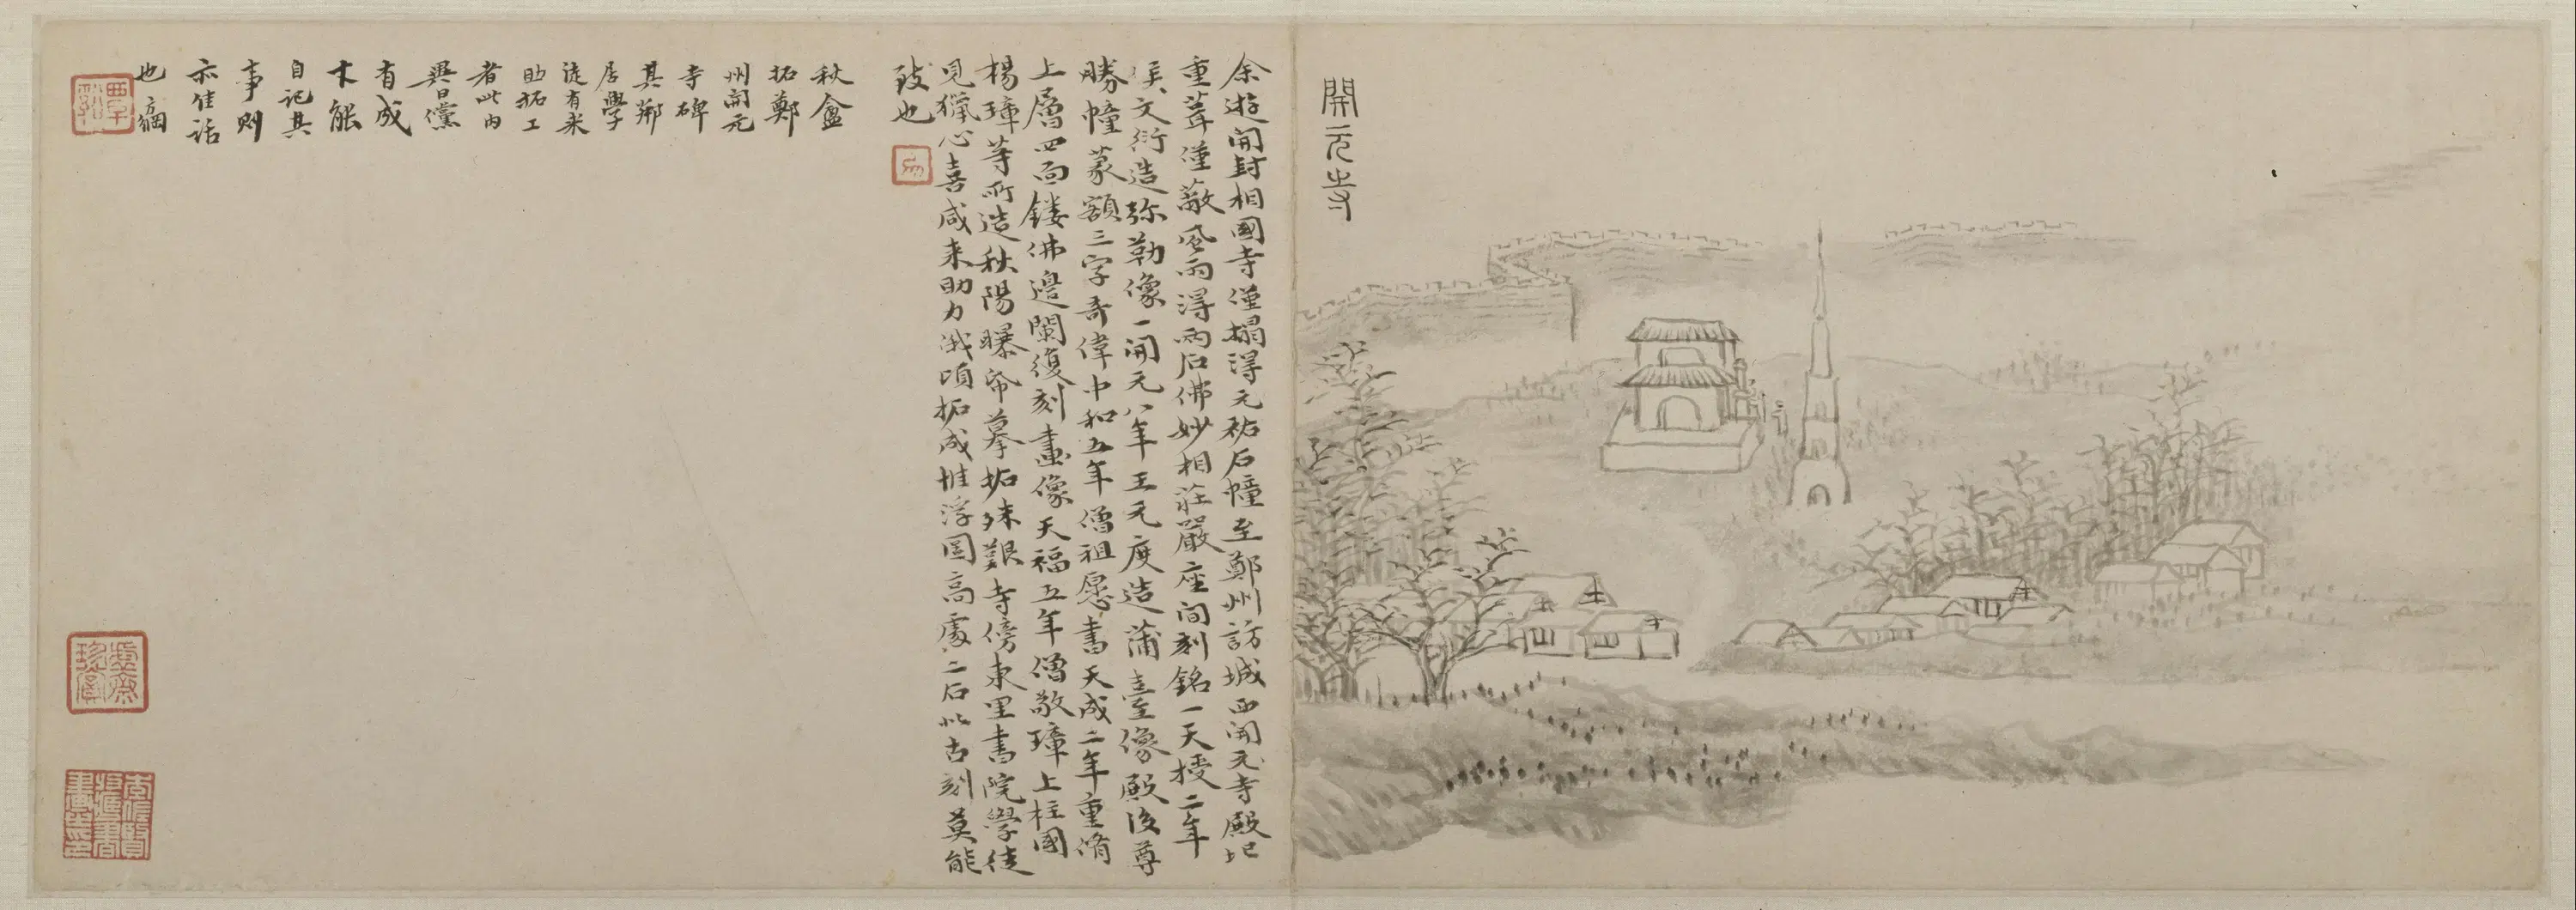 開元寺
余遊開封相國寺僅搨得元祐石幢至鄭州訪城西開元寺殿圮
重葺僅蔽風雨得兩石佛妙相莊嚴座間刻銘一天授二年
吴文衍造弥勒像一開元八年王无度造蒲臺像殿後尊
勝幢篆額三字奇偉中和五年僧祖愿書天成二年重脩
上層四面鏤佛邉闌復刻畫像天福五年僧敬璋上柱國
楊璋等所造秋陽曝帋摹拓殊艱寺傍東里書院學徒
見獵心喜咸来助力俄頃拓成惟浮圖高處二石非古刻莫能
致也
秋盦
拓鄭
州開元
寺碑
其鄰
居學
徒有来
助拓工
者此内
異日儻
有成
才能
自記其
事則
亦佳話
也 綱